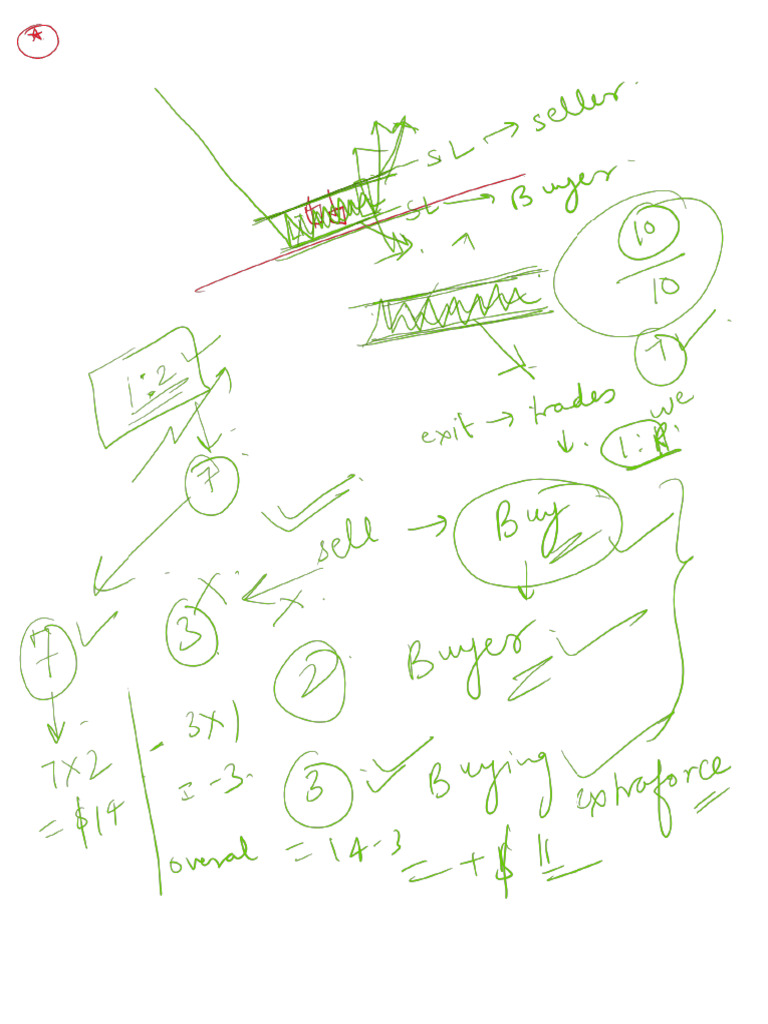 SL → seller.
SL → Buyer.
10
10
7
1:2
exit → trades
we
1:R.
7
sell → Buy
7
3
X
X.
Buyer.
2
7x2
= $14
- 3x1
= -3.
3
Buying
extraforce
overal = 14-3
= + $ 11